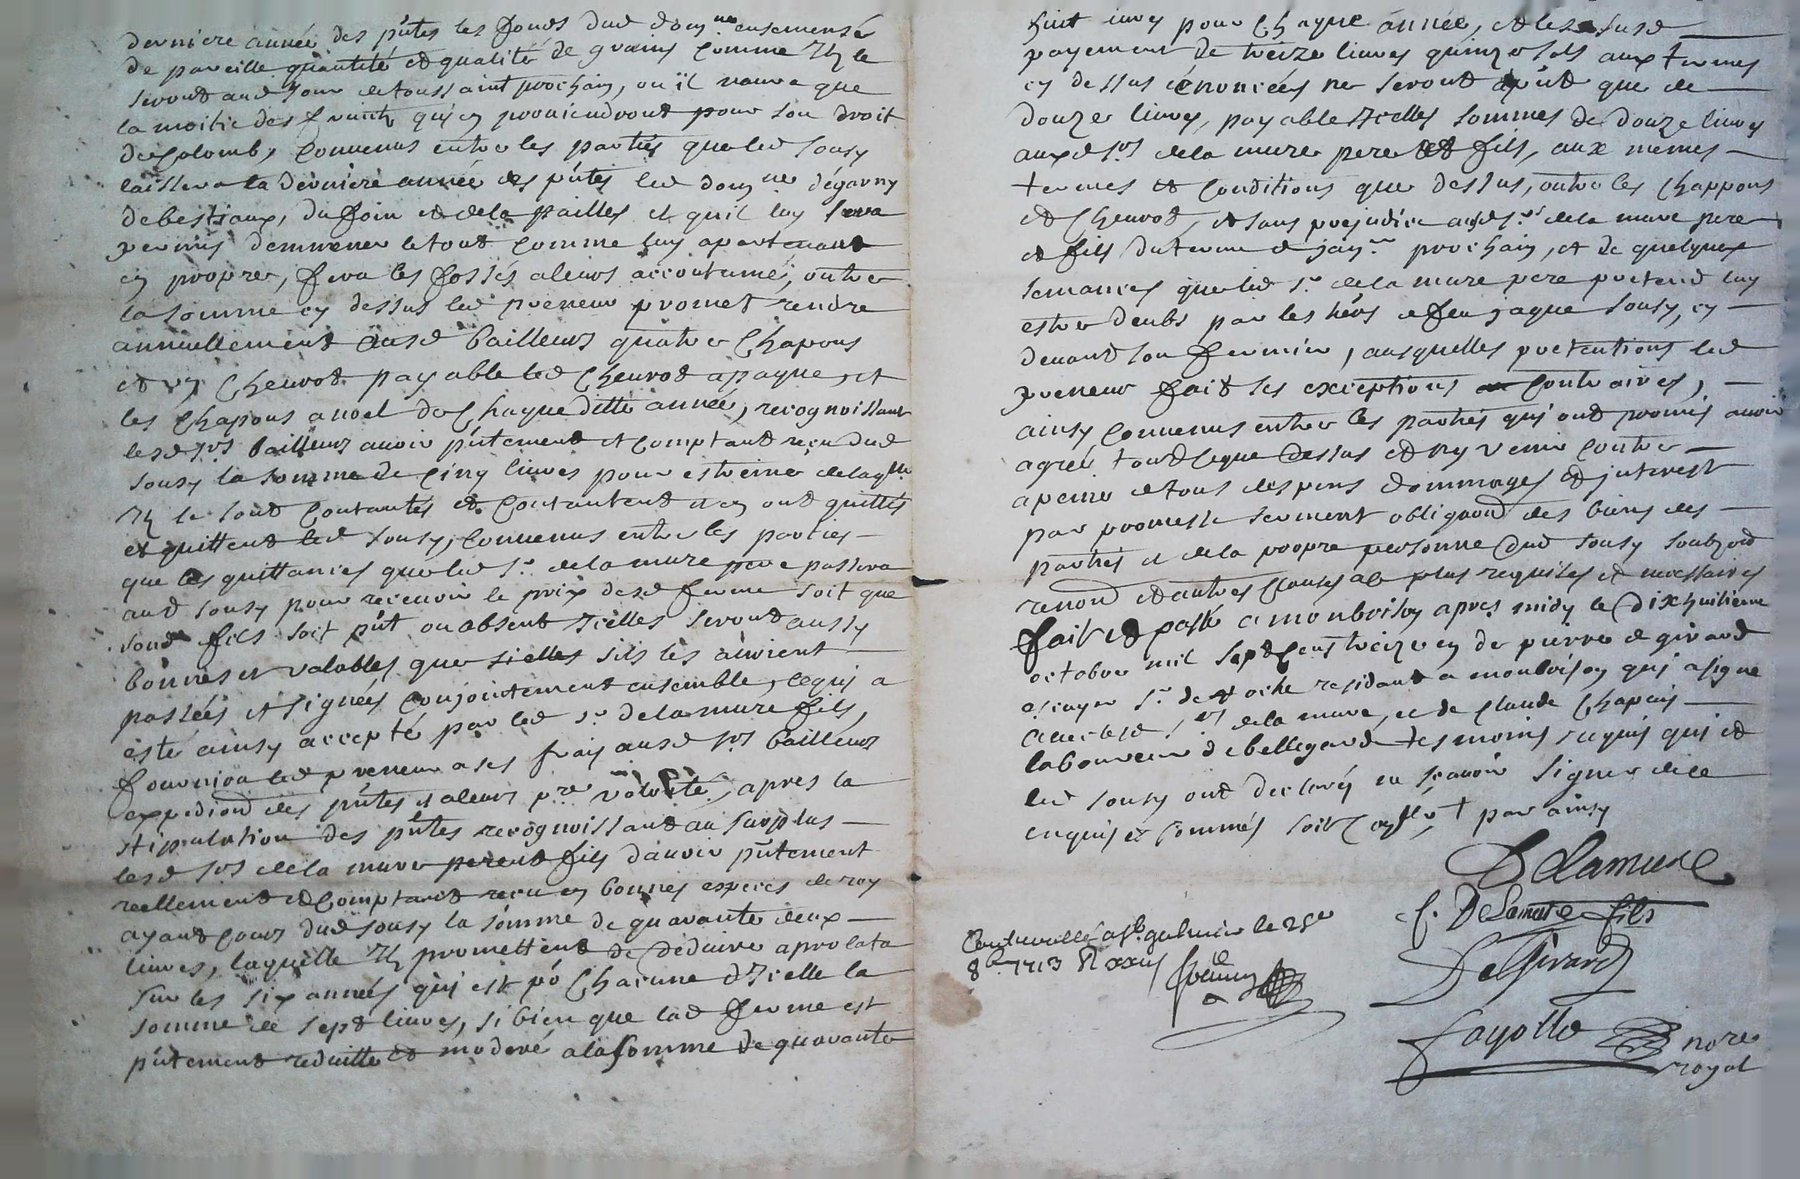 derniere année des p̃ntes les fonds dud dom.ne ensemensé
de pareille quantité et qualité de grains comme Ilz le
seront aud jour de toussaint prochain, ou il naura que
la moitié des fruicts qui en proviendront pour son droit
de Colomb, Convenus entre les parties que led Sousy
laissera la derniere année des p̃ntes led dom.ne dégarny
de bestiaux, du foin et de la pailles et quil luy sera
permis demmener le tout comme luy apartenant
en propre, fera les fossés aleurs accoutumé, outre
la somme cy dessus led preneur promet rendre
annuellement ausd bailleurs quatre Chapons
et un Chevrot payable led Chevrot a paque, et
les Chapons a noel de Chaque ditte année, recognoissant
lesd srs bailleurs avoir p̃ntement et comptant reçu dud
Sousy la somme de Cinq livres pour estreine de laqlle
Ilz se sont contantés et contantent et en ont quittés
et quittent led Sousy, Convenus entre les parties
que les quittances que led sr. de la mure pere passera
aud Sousy pour recevoir le prix desd ferme soit que
sond fils soit p̃nt ou absent Icelles seront aussy
bonnes et valables que sielles sils les avoient
passées et signées Conjointement ensemble, ce qui a
esté ainsy accepté par led sr. de la mure fils,
fournira led preneur a ses frais ausd srs bailleurs
expediond des p̃ntes a leurs pre volonté, apres la
stipulation des p̃ntes recognoissant au surplus
lesd srs de la mure pere et fils davoir p̃ntement
reellement et comptant reçu en bonnes especes de roy
ayant cours dud Sousy la somme de quarante deux
livres, laquelle Ilz promettent de deduire a pro lata
sur les six années qui est po Chacune dIcelle la
somme de sept livres, si bien que lad ferme est
p̃ntement reduitte et moderé a la somme de quarante
huit livres pour Chaque année, et les susd
payement de treize livres quinze sols aux termes
cy dessus énoncées ne seront que de
douze livres, payable Icelles sommes de douze livres
auxd srs de la mure pere et fils, aux memes
termes et conditions que dessus, outre les Chappons
et Chevrot, et sans prejudice ausd srs de la mure pere
et fils du terme de jan.er prochain, et de quelques
semances que led sr. de la mure pere pretend luy
estre deubs par les hers de feu jaque Sousy, cy
devant son fermier, ausquelles pretentions led
preneur fait ses exceptions contraires,
ainsy Convenus entre les parties qui ont promis avoir
agreé tout ce que dessus et ny venir contre
a peine de tous despens dommages et interest
par promesse serment obligaond des biens des
parties et de la propre personne dud Sousy soubz
renond et autres clauses ale plus requises et necessaires
fait et passé a monbrison apres midy le dixhuitieme
octobre mil sept Cent treize en de pierre de girard
escuyer sr. de roche residant a monbrison qui a signé
avec lesd srs de la mure, et de Claude Chapuis
laboureur de bellegarde tesmoins requis qui et
led Sousy ont declaré ne scavoir signer de ce
enquis et sommés soit + par ainsy
Delamure
Delamure fils
De Girard
Fayolle nore
royal
Controllé a st. galmier le 25e
8bre 1713